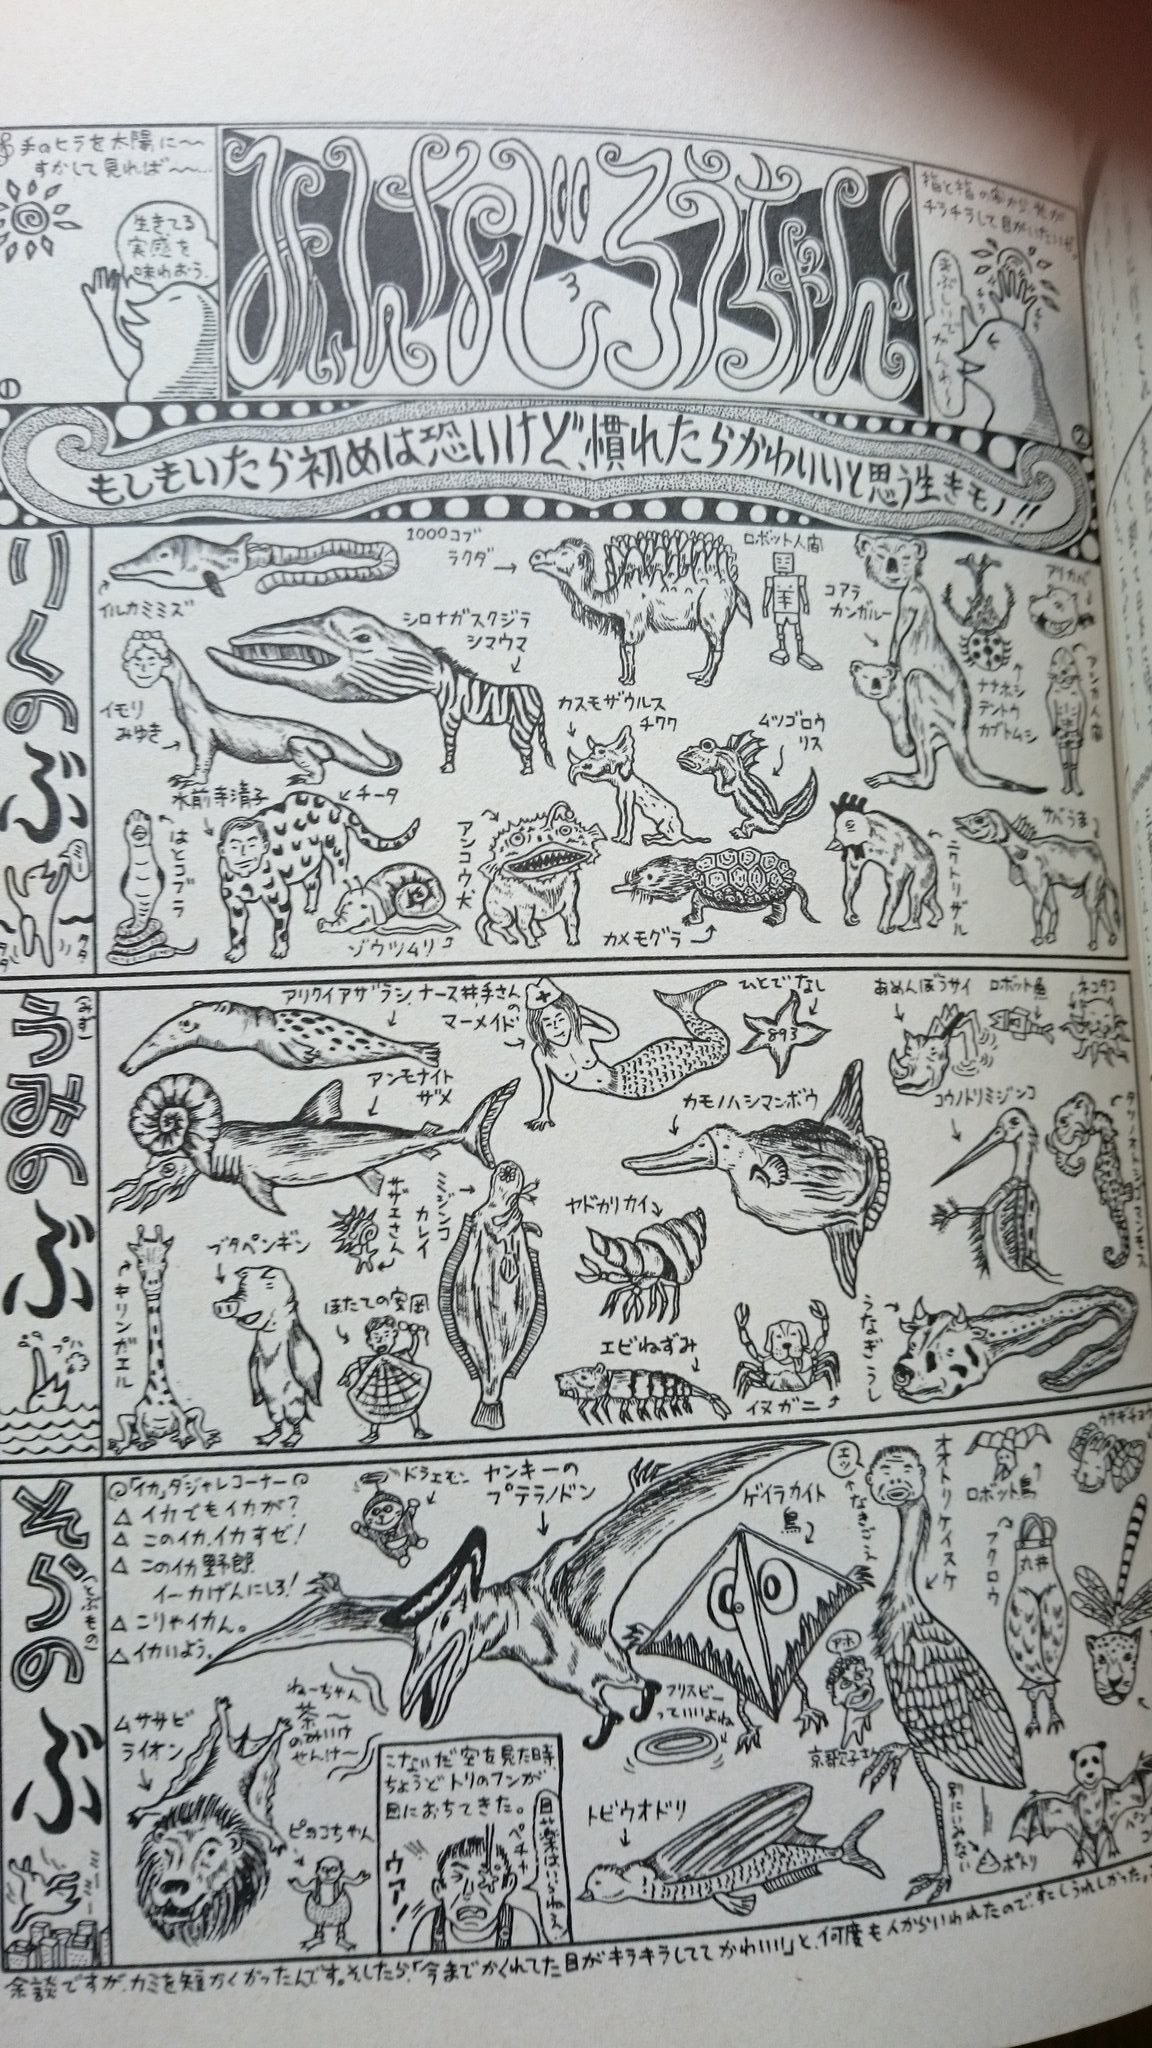 手のヒラを太陽に〜〜
すかして見れば〜〜…
生きてる
実感を
味わおう。
①
まんがじろうちゃん!
②
もしもいたら初めは恐いけど、慣れたらかわいいと思う生きモノ!!
りくのぶ
イルカミミズ
1000コブ
ラクダ
ロボット人間
コアラ
カンガルー
ナナホシ
テントウ
カブトムシ
アリカバ
シロナガスクジラ
シマウマ
イモリ
みゆき
カスモザウルス
チワワ
ムツゴロウ
リス
水前寺清子
チータ
はとコブラ
ゾウツムリ
アンコウ犬
カメモグラ
ニワトリザル
サバうま
うみのぶ
(みず)
アリクイアザラシ
ナース井手さん
の
マーメイド
ひとでなし
893
あめんぼうサイ
ロボット魚
ネコタコ
アンモナイト
ザメ
カモノハシマンボウ
コウノトリミジンコ
サザエさん
ミジンコ
カレイ
ヤドカリカイ
キリンガエル
ブタペンギン
ほたての安岡
エビねずみ
イヌガニ
うなぎうし
そらのぶ
(とぶもの)
「イカ」ダジャレコーナー
△ イカでもイカが?
△ このイカ、イカすぜ!
△ このイカ野郎
イーカげんにしろ!
△ こりゃイカん。
△ イカいよう。
ドラえモン
ヤンキーの
プテラノドン
ゲイラカイト
鳥
エッ
オオトリケイスケ
ロボット鳥
ウサギチョウ
フクロウ
丸井
ムササビ
ライオン
ねーちゃん
茶〜
のみいけ
せんけ〜
ピヨコちゃん
こないだ空を見た時、
ちょうどトリのフンが
目におちてきた。
ペチャ
ウァー!
フリスビー
っていいよね
アホ
京都くん
トビウオドリ
ポトリ
余談ですが、カミを短かくかったんです。そしたら、「今までかくれてた目がキラキラしててかわいい」と、何度も人からいわれたので、すこしうれしかった。